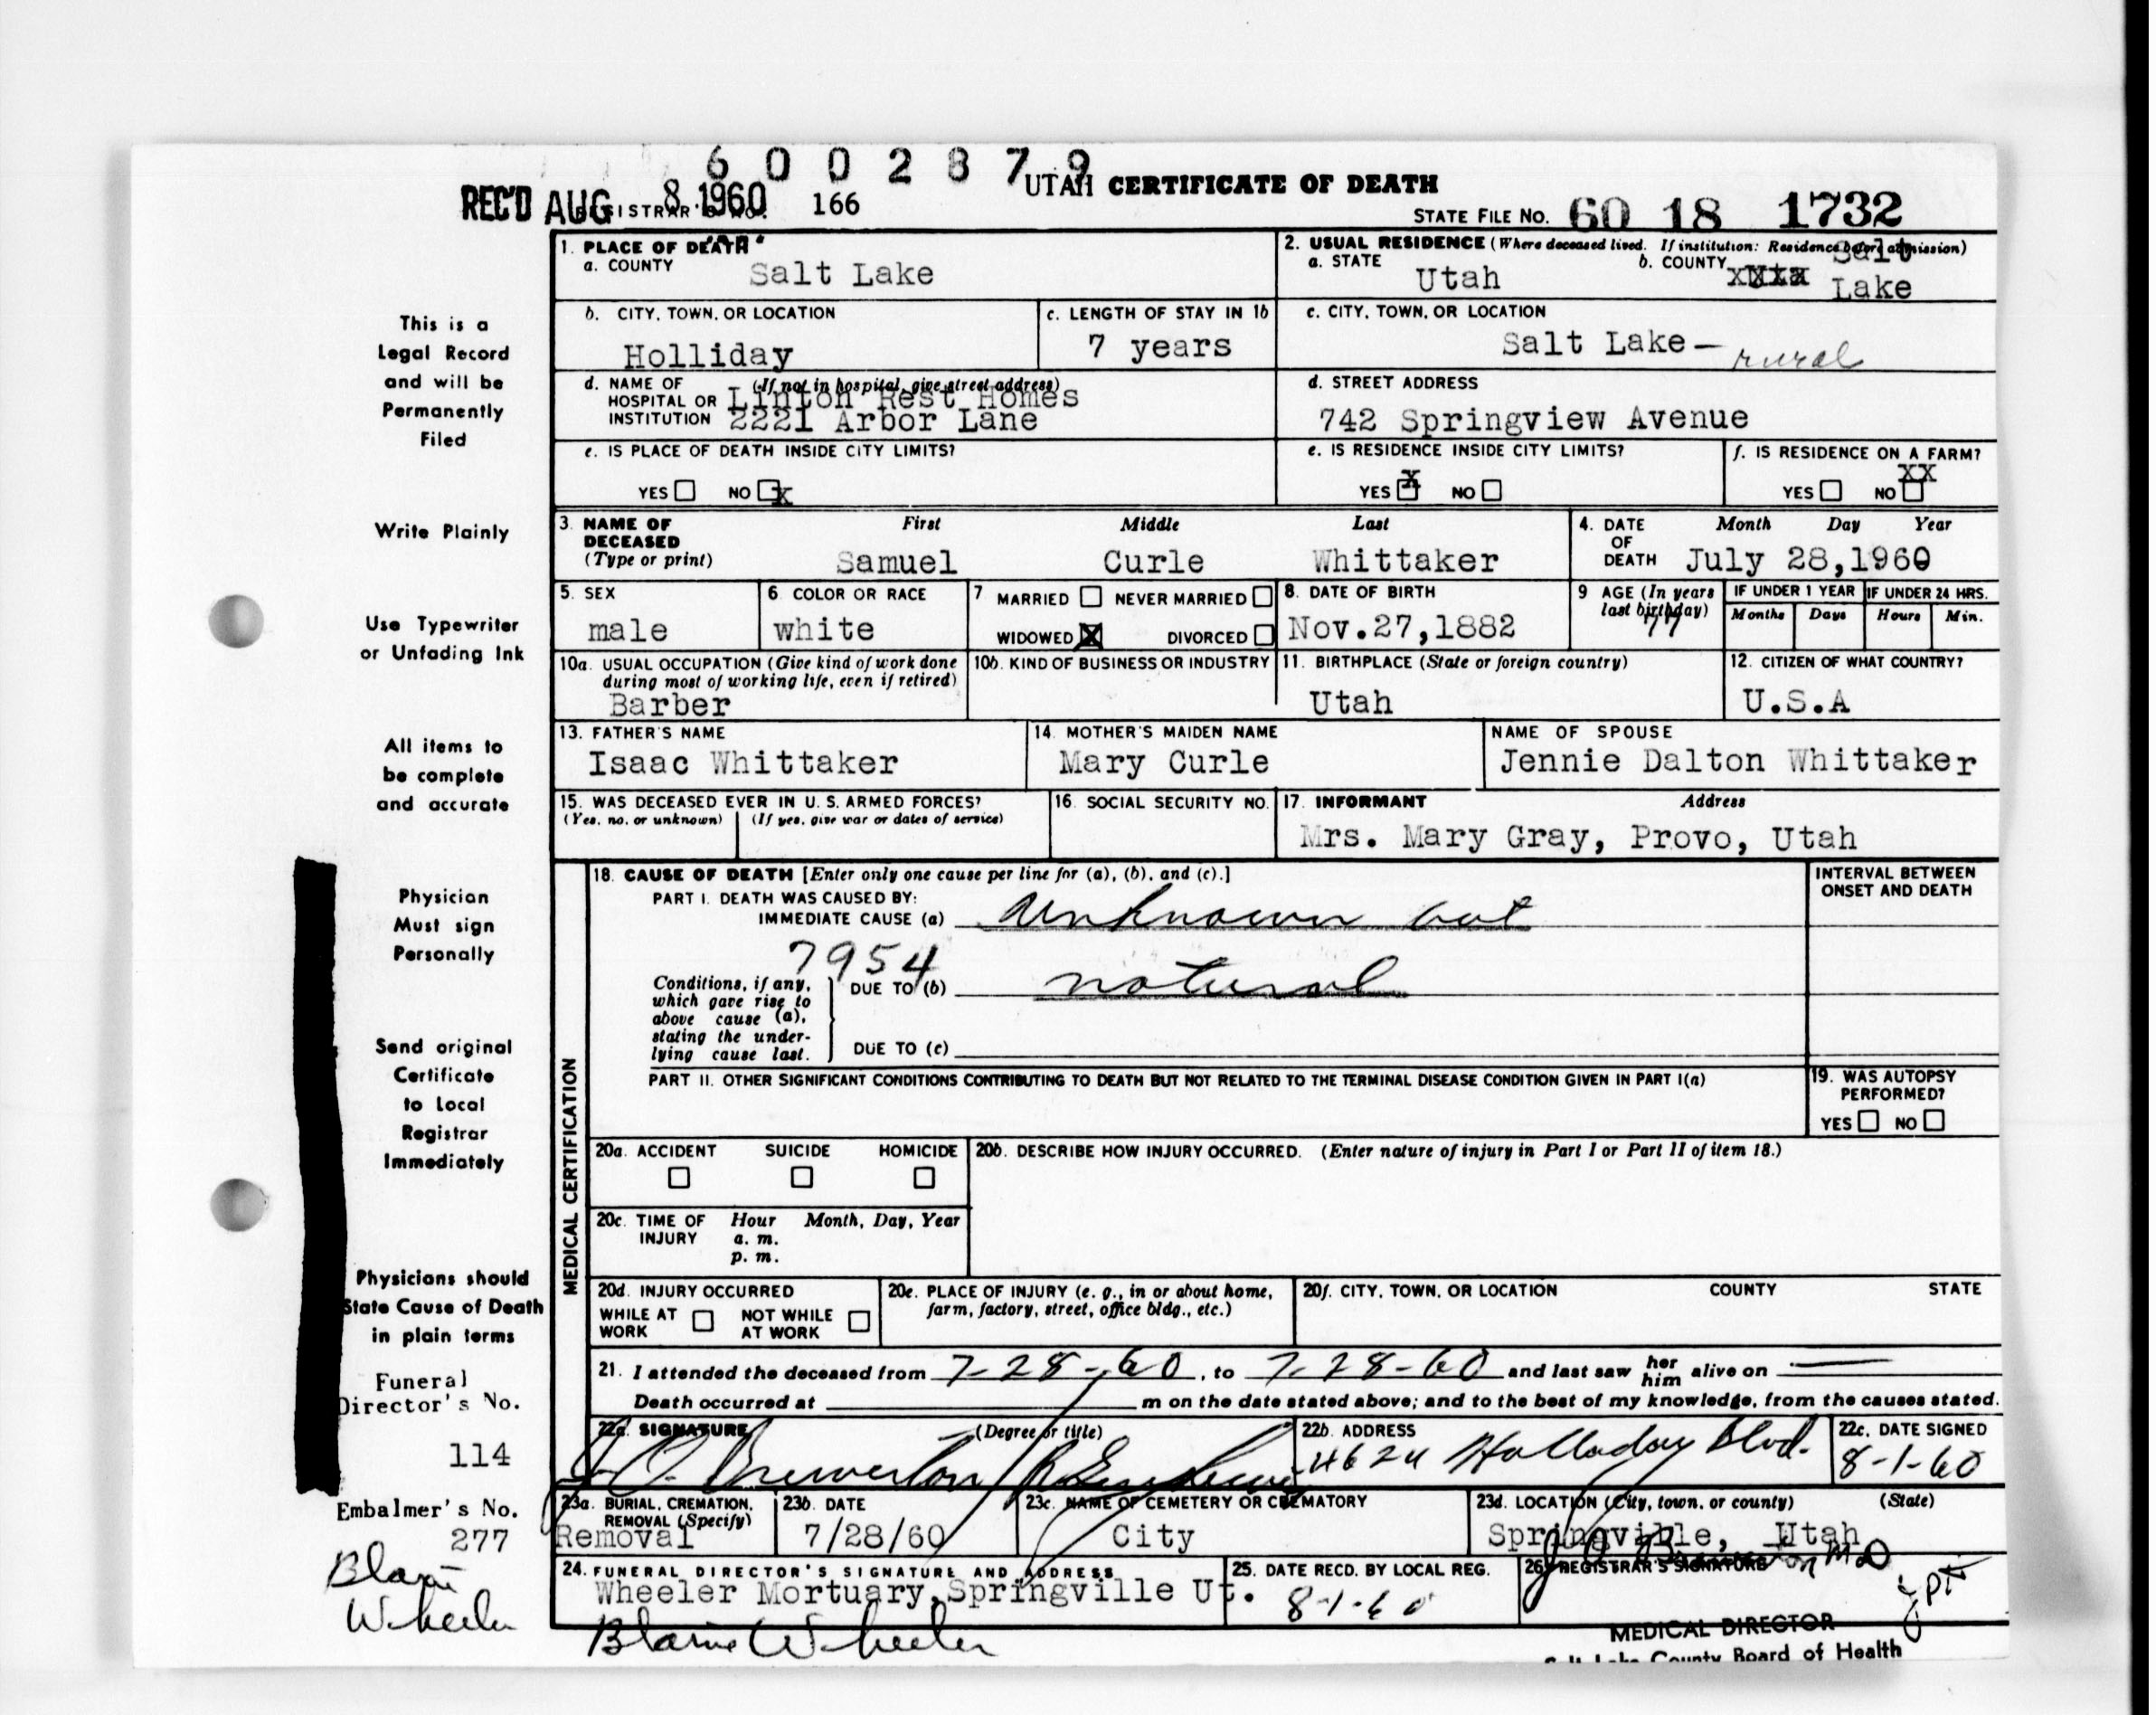 6 0 0 2 8 7 9
REC'D AUG 8 1960 REGISTRAR'S NO. 166
UTAH CERTIFICATE OF DEATH
STATE FILE NO. 60 18 1732
1. PLACE OF DEATH
a. COUNTY Salt Lake
2. USUAL RESIDENCE (Where deceased lived. If institution: Residence before admission)
a. STATE Utah
b. COUNTY Salt Lake
b. CITY, TOWN, OR LOCATION
Holliday
c. LENGTH OF STAY IN 1b
7 years
c. CITY, TOWN, OR LOCATION
Salt Lake — rural
d. NAME OF HOSPITAL OR INSTITUTION (If not in hospital, give street address)
Linton Rest Homes
2221 Arbor Lane
d. STREET ADDRESS
742 Springview Avenue
e. IS PLACE OF DEATH INSIDE CITY LIMITS?
YES NO x
e. IS RESIDENCE INSIDE CITY LIMITS?
YES x NO
f. IS RESIDENCE ON A FARM?
YES NO XX
3. NAME OF DECEASED (Type or print)
First Middle Last
Samuel Curle Whittaker
4. DATE OF DEATH Month Day Year
July 28,1960
5. SEX
male
6. COLOR OR RACE
white
7 MARRIED NEVER MARRIED
WIDOWED X DIVORCED
8. DATE OF BIRTH
Nov.27,1882
9 AGE (In years last birthday)
77
IF UNDER 1 YEAR
Months Days
IF UNDER 24 HRS.
Hours Min.
10a. USUAL OCCUPATION (Give kind of work done during most of working life, even if retired)
Barber
10b. KIND OF BUSINESS OR INDUSTRY
11. BIRTHPLACE (State or foreign country)
Utah
12. CITIZEN OF WHAT COUNTRY?
U.S.A
13. FATHER'S NAME
Isaac Whittaker
14. MOTHER'S MAIDEN NAME
Mary Curle
NAME OF SPOUSE
Jennie Dalton Whittaker
15. WAS DECEASED EVER IN U.S. ARMED FORCES?
(Yes, no, or unknown) (If yes, give war or dates of service)
16. SOCIAL SECURITY NO.
17. INFORMANT Address
Mrs. Mary Gray, Provo, Utah
MEDICAL CERTIFICATION
18. CAUSE OF DEATH [Enter only one cause per line for (a), (b), and (c).]
PART I. DEATH WAS CAUSED BY:
IMMEDIATE CAUSE (a) unknown but
7954
Conditions, if any, which gave rise to above cause (a), stating the underlying cause last.
DUE TO (b) natural
DUE TO (c)
INTERVAL BETWEEN ONSET AND DEATH
PART II. OTHER SIGNIFICANT CONDITIONS CONTRIBUTING TO DEATH BUT NOT RELATED TO THE TERMINAL DISEASE CONDITION GIVEN IN PART I(a)
19. WAS AUTOPSY PERFORMED?
YES NO
20a. ACCIDENT SUICIDE HOMICIDE
20b. DESCRIBE HOW INJURY OCCURRED. (Enter nature of injury in Part I or Part II of item 18.)
20c. TIME OF INJURY Hour Month, Day, Year
a. m.
p. m.
20d. INJURY OCCURRED
WHILE AT WORK NOT WHILE AT WORK
20e. PLACE OF INJURY (e. g., in or about home, farm, factory, street, office bldg., etc.)
20f. CITY, TOWN, OR LOCATION COUNTY STATE
21. I attended the deceased from 7-28-60, to 7-28-60 and last saw her him alive on —
Death occurred at m on the date stated above; and to the best of my knowledge, from the causes stated.
22a. SIGNATURE (Degree or title)
J. O. Brewerton
22b. ADDRESS
4624 Holladay Blvd.
22c. DATE SIGNED
8-1-60
23a. BURIAL, CREMATION, REMOVAL (Specify)
Removal
23b. DATE
7/28/60
23c. NAME OF CEMETERY OR CREMATORY
City
23d. LOCATION (City, town, or county) (State)
Springville, Utah
24. FUNERAL DIRECTOR'S SIGNATURE AND ADDRESS
Wheeler Mortuary, Springville Ut.
Blaine Wheeler
25. DATE RECD. BY LOCAL REG.
8-1-60
26. REGISTRAR'S SIGNATURE
MD
MEDICAL DIRECTOR
Salt Lake County Board of Health
This is a
Legal Record
and will be
Permanently
Filed
Write Plainly
Use Typewriter
or Unfading Ink
All items to
be complete
and accurate
Physician
Must sign
Personally
Send original
Certificate
to Local
Registrar
Immediately
Physicians should
State Cause of Death
in plain terms
Funeral
Director's No.
114
Embalmer's No.
277
Blaine
Wheeler